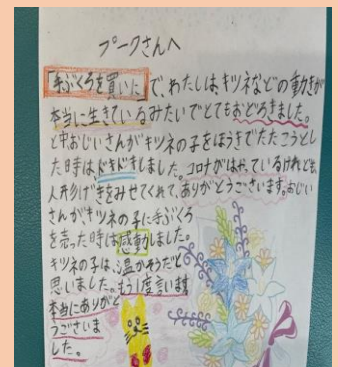 プークさんへ
「手ぶくろを買いに」で、わたしは、キツネなどの動きが
本当に生きているみたいでとてもおどろきました。
と中おじいさんがキツネの子をほうきでたたこうとし
た時は、ドキドキしました。コロナがはやっているけれども、
人形げきをみせてくれて、ありがとうございます。おじい
さんがキツネの子に手ぶくろ
を売った時は感動しました。
キツネの子は、温かそうだと
思いました。もう1度言います
本当にありがと
うございま
した。